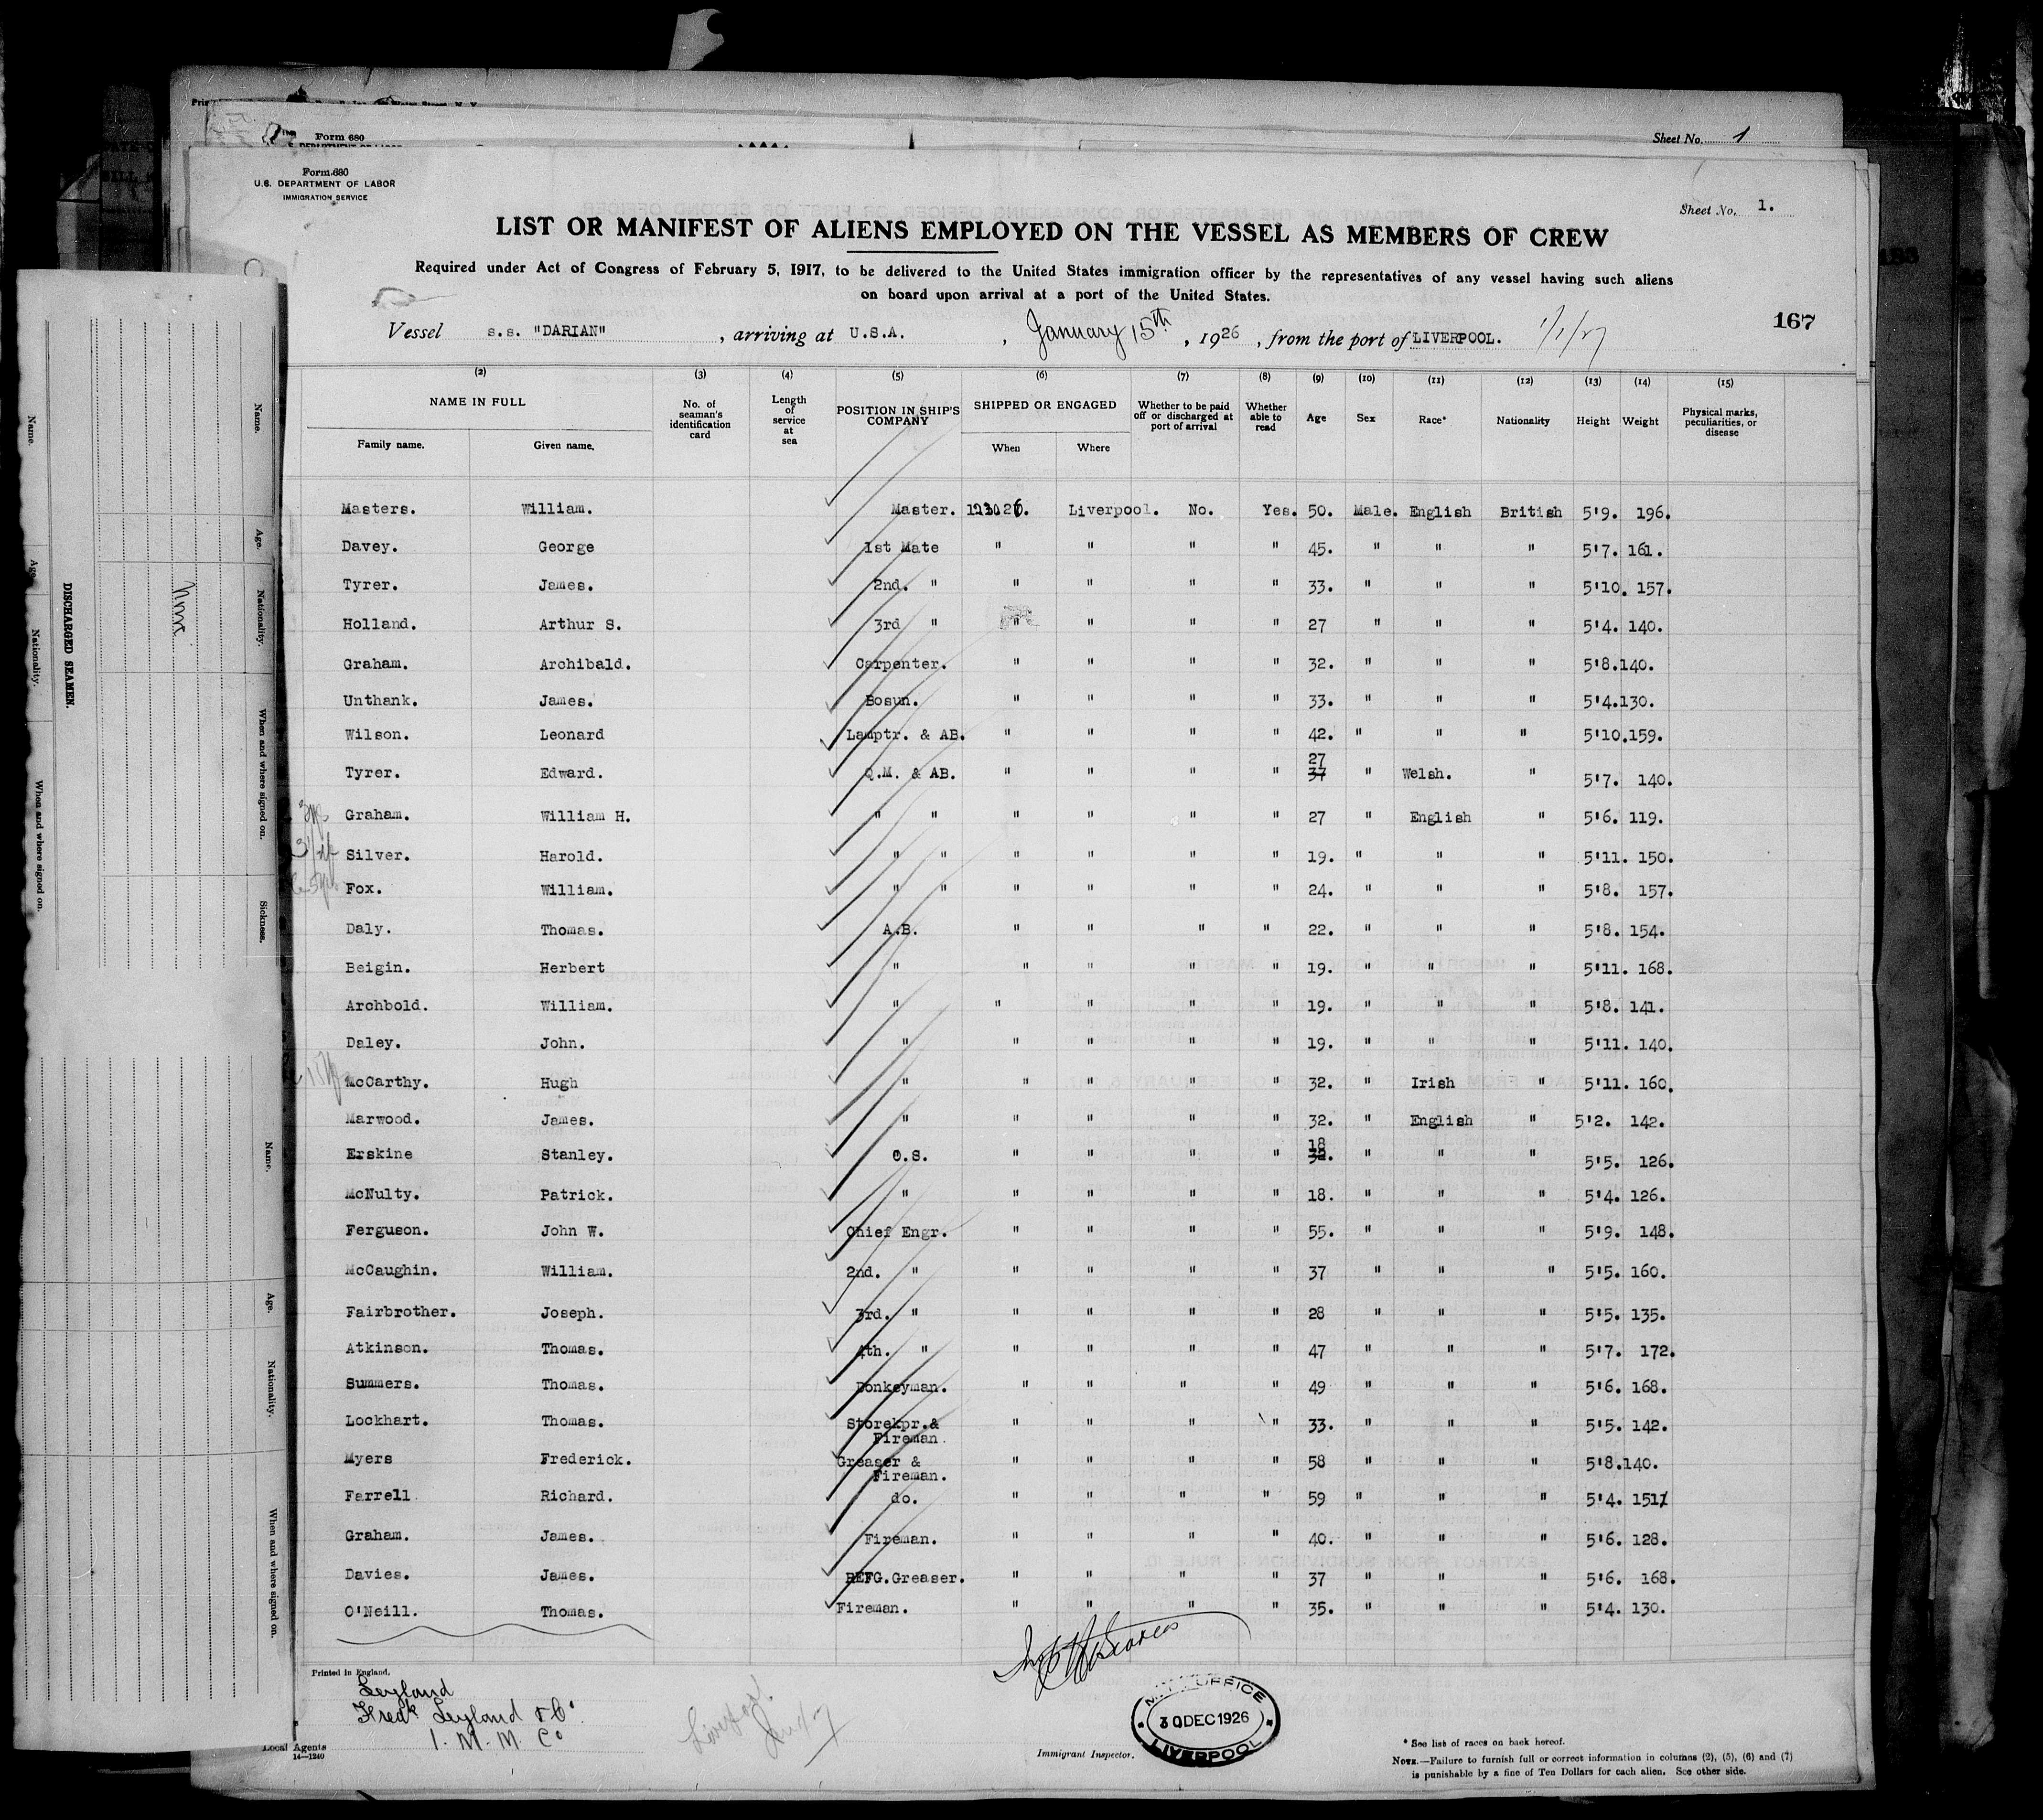 Form 680
Sheet No. 1
Form 680
U.S. DEPARTMENT OF LABOR
IMMIGRATION SERVICE
Sheet No. 1.
LIST OR MANIFEST OF ALIENS EMPLOYED ON THE VESSEL AS MEMBERS OF CREW
Required under Act of Congress of February 5, 1917, to be delivered to the United States immigration officer by the representatives of any vessel having such aliens
on board upon arrival at a port of the United States.
Vessel s.s. "DARIAN" , arriving at U.S.A. , January 15th , 1926 , from the port of LIVERPOOL. 1/1/27 167
(2) (3) (4) (5) (6) (7) (8) (9) (10) (11) (12) (13) (14) (15)
NAME IN FULL Family name. Given name. No. of seaman's identification card Length of service at sea POSITION IN SHIP'S COMPANY SHIPPED OR ENGAGED When Where Whether to be paid off or discharged at port of arrival Whether able to read Age Sex Race* Nationality Height Weight Physical marks, peculiarities, or disease
Masters. William. Master. Liverpool. No. Yes. 50. Male. English British 5'9. 196.
Davey. George 1st Mate " " " " 45. " " " 5'7. 161.
Tyrer. James. 2nd. " " " " " 33. " " " 5'10. 157.
Holland. Arthur S. 3rd " " " " " 27 " " " 5'4. 140.
Graham. Archibald. Carpenter. " " " " 32. " " " 5'8. 140.
Unthank. James. Bosun. " " " " 33. " " " 5'4. 130.
Wilson. Leonard Lamptr. & AB. " " " " 42. " " " 5'10. 159.
Tyrer. Edward. Q.M. & AB. " " " " 27 37 " Welsh. " 5'7. 140.
Graham. William H. " " " " " " 27 " English " 5'6. 119.
Silver. Harold. " " " " " " 19. " " " 5'11. 150.
Fox. William. " " " " " " 24. " " " 5'8. 157.
Daly. Thomas. A.B. " " " " 22. " " " 5'8. 154.
Beigin. Herbert " " " " " 19. " " " 5'11. 168.
Archbold. William. " " " " " 19. " " " 5'8. 141.
Daley. John. " " " " " 19. " " " 5'11. 140.
McCarthy. Hugh " " " " " 32. " Irish " 5'11. 160.
Marwood. James. " " " " " 32. " English " 5'2. 142.
Erskine Stanley. O.S. " " " " 18 32. " " " 5'5. 126.
McNulty. Patrick. " " " " " 18. " " " 5'4. 126.
Ferguson. John W. Chief Engr. " " " " 55. " " " 5'9. 148.
McCaughin. William. 2nd. " " " " " 37 " " " 5'5. 160.
Fairbrother. Joseph. 3rd. " " " " " 28 " " " 5'5. 135.
Atkinson. Thomas. 4th. " " " " " 47 " " " 5'7. 172.
Summers. Thomas. Donkeyman. " " " " 49 " " " 5'6. 168.
Lockhart. Thomas. Storekpr.& Fireman. " " " " 33. " " " 5'5. 142.
Myers Frederick. Greaser & Fireman. " " " " 58 " " " 5'8. 140.
Farrell Richard. do. " " " " 59 " " " 5'4. 151
Graham. James. Fireman. " " " " 40. " " " 5'6. 128.
Davies. James. REFG.Greaser. " " " " 37 " " " 5'6. 168.
O'Neill. Thomas. Fireman. " " " " 35. " " " 5'4. 130.
Printed in England.
Leyland
Fredk Leyland & Co.
I. M. M. Co
Local Agents
14—1240
Liverpool
Immigrant Inspector.
OFFICE
30 DEC 1926
LIVERPOOL
* See list of races on back hereof.
NOTE.—Failure to furnish full or correct information in columns (2), (5), (6) and (7)
is punishable by a fine of Ten Dollars for each alien. See other side.
DISCHARGED SEAMEN.
Name.
Age.
Nationality.
When and where signed on.
Sickness.
Name.
Age.
Nationality.
When and where signed on.
Name.
Age.
Nationality.
When and where signed on.